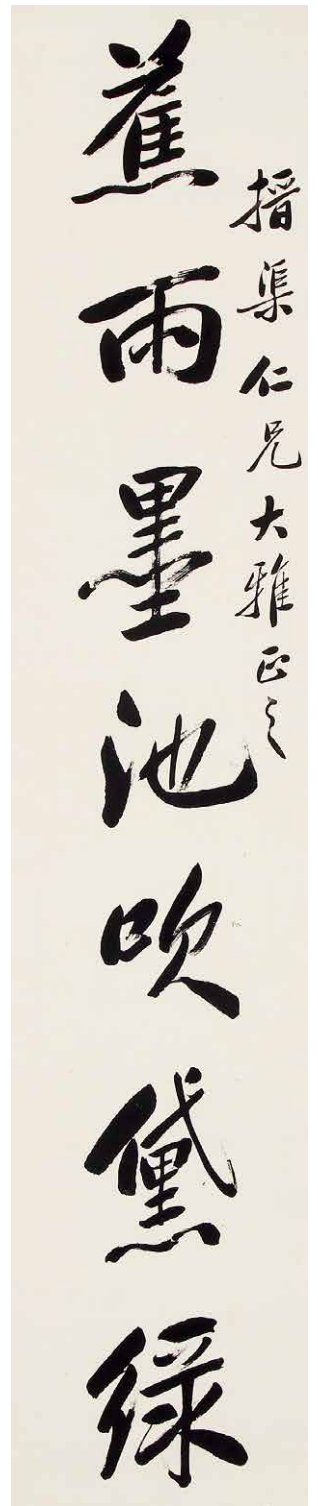 搢渠仁兄大雅正之
蕉雨墨池吹黛綠